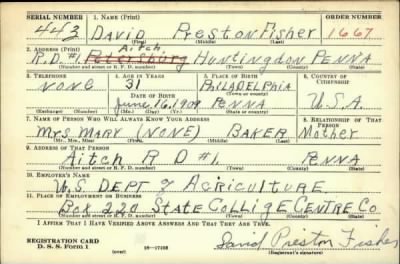 SERIAL NUMBER 1. NAME (Print) ORDER NUMBER
443 DAVID PRESTON FISHER 1667
(First) (Middle) (Last)
2. ADDRESS (Print) Aitch,
R.D.#1. Petersburg HUNTINGDON PENNA
(Number and street or R. F. D. number) (Town) (County) (State)
3. TELEPHONE 4. AGE IN YEARS 5. PLACE OF BIRTH 6. COUNTRY OF CITIZENSHIP
NONE 31 PHILADELPHIA
DATE OF BIRTH (Town or county)
June, 16, 1909 PENNA U.S.A.
(Exchange) (Number) (Mo.) (Day) (Yr.) (State or country)
7. NAME OF PERSON WHO WILL ALWAYS KNOW YOUR ADDRESS 8. RELATIONSHIP OF THAT PERSON
MRS. MARY (NONE) BAKER Mother
(Mr., Mrs., Miss) (First) (Middle) (Last)
9. ADDRESS OF THAT PERSON
Aitch R D #1. PENNA
(Number and street or R. F. D. number) (Town) (County) (State)
10. EMPLOYER'S NAME
U.S. DEPT of AGRICULTURE.
11. PLACE OF EMPLOYMENT OR BUSINESS
BOX 220 STATE COLLIGE CENTRE CO.
(Number and street or R. F. D. number) (Town) (County) (State)
I AFFIRM THAT I HAVE VERIFIED ABOVE ANSWERS AND THAT THEY ARE TRUE.
REGISTRATION CARD
D. S. S. Form 1 (over) 16—17105 David Preston Fisher
(Registrant's signature)